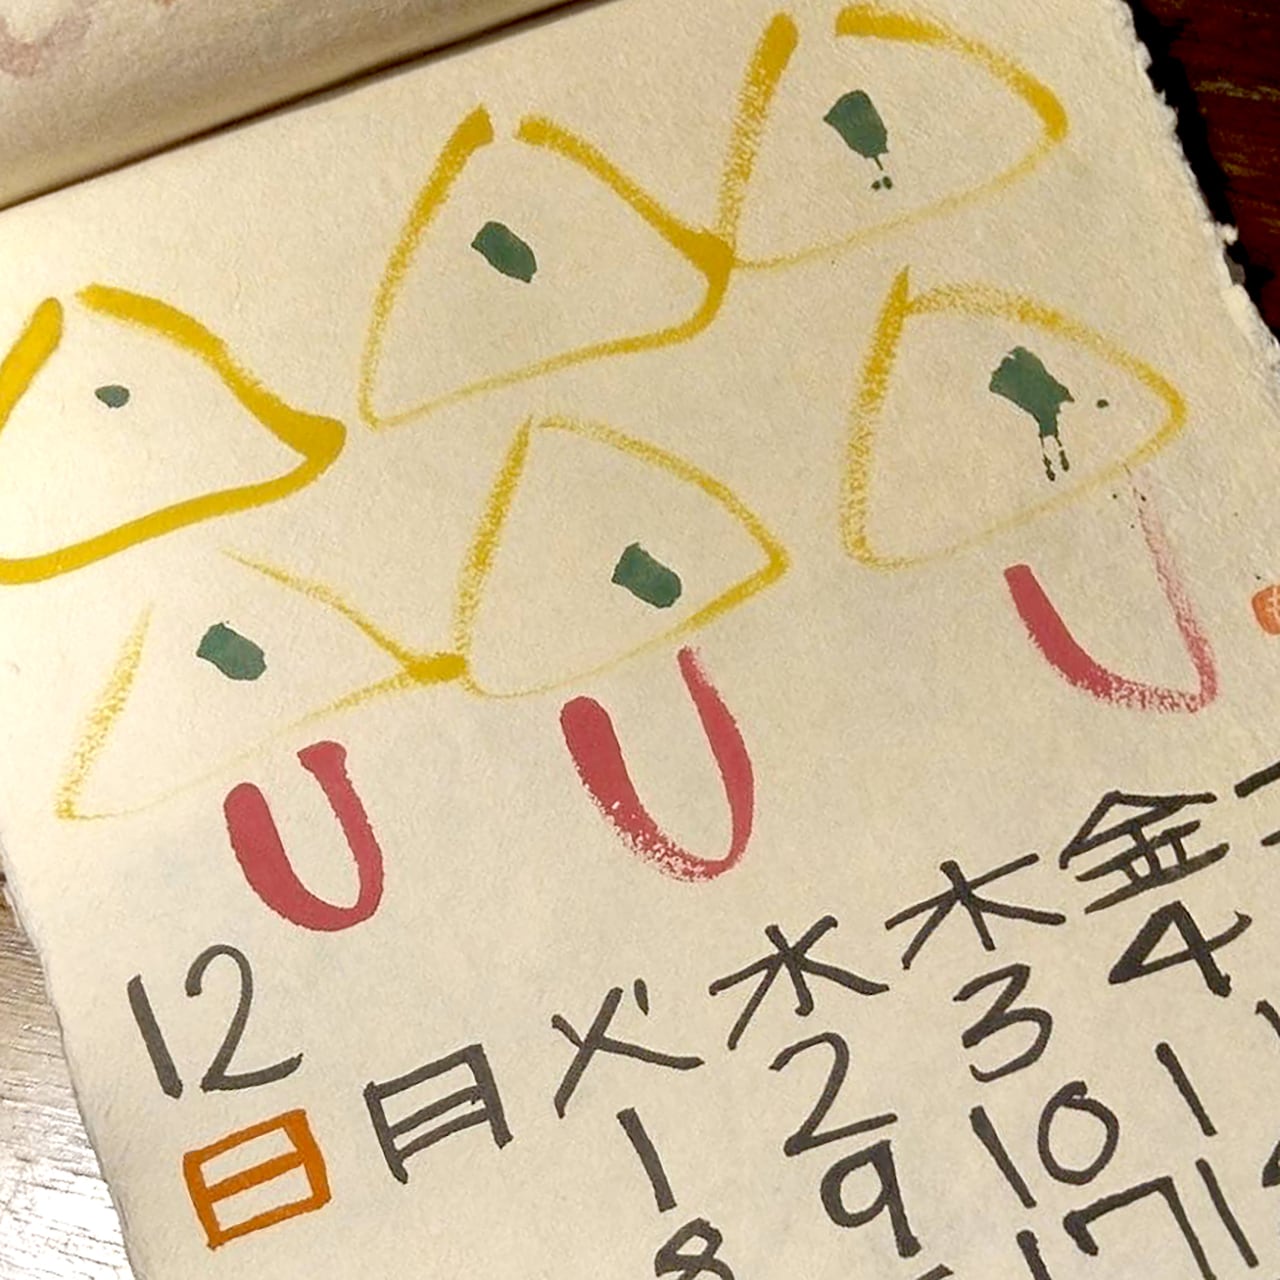 12
日 月 火 水 木 金
1 2 3 4
8 9 10 11
17